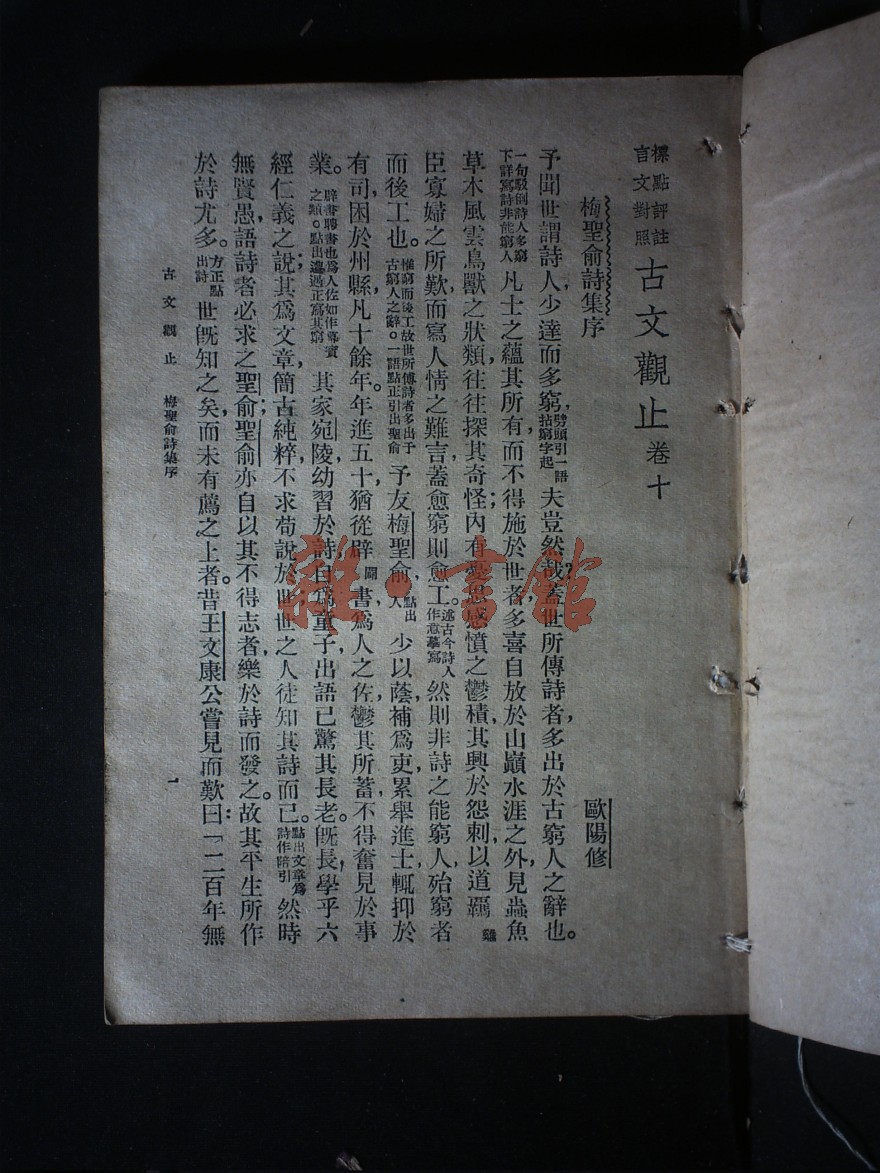 標點評註
言文對照
古文觀止 卷十
梅聖俞詩集序 歐陽修
予聞世謂詩人少達而多窮，劈頭引一語拈窮字起夫豈然哉？蓋世所傳詩者，多出於古窮人之辭也。
一句駁倒詩人多窮下詳寫詩非能窮人凡士之蘊其所有，而不得施於世者，多喜自放於山巓水涯之外，見蟲魚
草木風雲鳥獸之狀類，往往探其奇怪；內有憂思感憤之鬱積，其興於怨刺，以道羈雞
臣寡婦之所歎，而寫人情之難言，蓋愈窮則愈工。述古今詩人作意摹寫然則非詩之能窮人，殆窮者
而後工也。惟窮而後工故世所傳詩者多出于古窮人之辭。一語點正引出聖俞予友梅聖俞，點出人少以蔭補爲吏，累舉進士，輒抑於
有司，困於州縣，凡十餘年。年進五十，猶從辟闢書，爲人之佐，鬱其所蓄，不得奮見於事
業。辟書聘書也爲人佐如作幕賓之類。點出遭遇正寫其窮其家宛陵，幼習於詩，自爲童子，出語已驚其長老。旣長，學乎六
經仁義之說；其爲文章，簡古純粹，不求苟說於世，世之人徒知其詩而已。點出文章爲詩作陪引然時
無賢愚，語詩者必求之聖俞；聖俞亦自以其不得志者，樂於詩而發之。故其平生所作，
於詩尤多。方正點出詩世旣知之矣，而未有薦之上者。昔王文康公嘗見而歎曰：「二百年無
古文觀止 梅聖俞詩集序 一
雜·書館